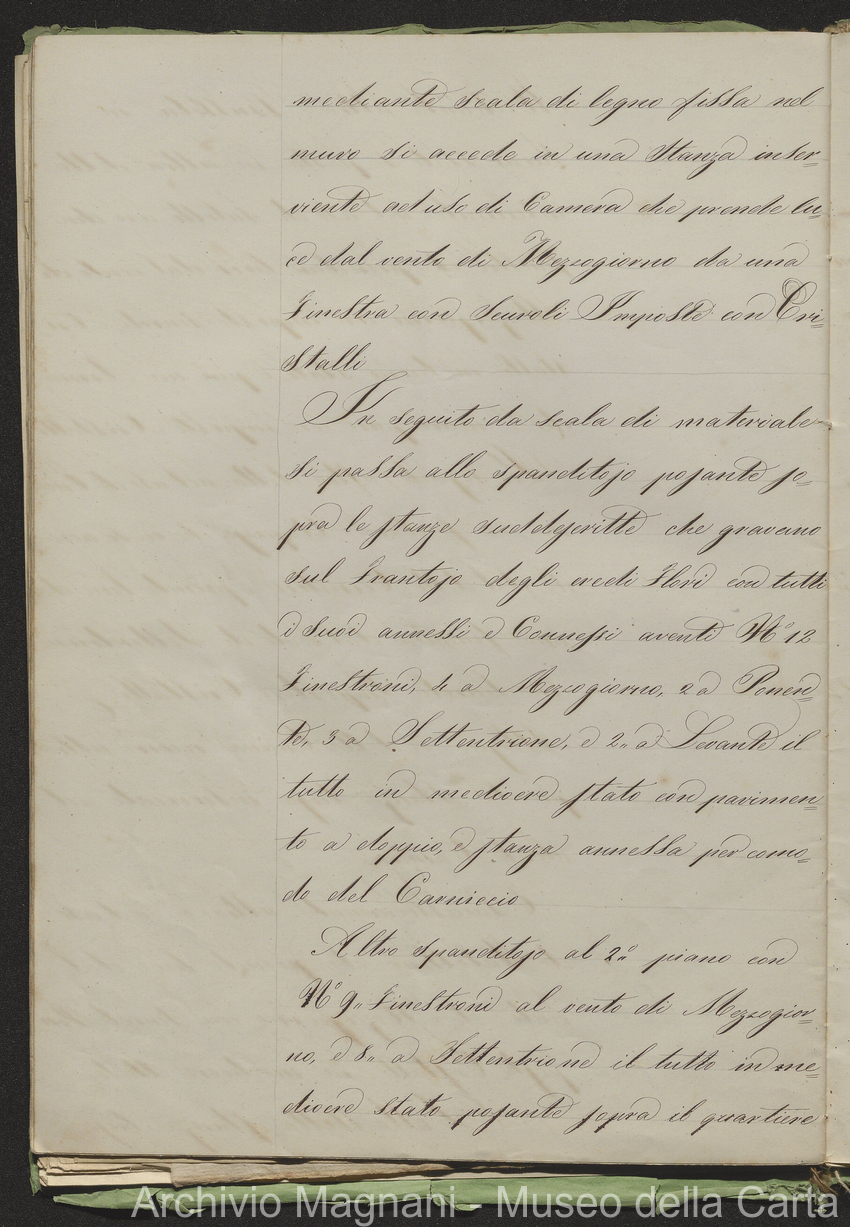 mediante scala di legno fissa nel
muro si accede in una Stanza inser=
viente ad uso di Camera che prende lu=
ce dal vento di Mezzogiorno da una
Finestra con Scuroli Imposte con Cri=
stalli
In seguito da scala di materiale
si passa allo spanditojo posante so=
pra le stanze suddescritte che gravano
sul Frantojo degli eredi Flori con tutti
i suoi annessi e Connessi aventi N° 12
Finestroni, 4 a Mezzogiorno, 2 a Ponen=
te, 3 a Settentrione, e 2,, a Levante il
tutto in mediocre stato con pavimen=
to a doppio, e stanza annessa per como=
do del Carniccio
Altro spanditojo al 2° piano con
N° 9,, Finestroni al vento di Mezzogior=
no, e 8,, a Settentrione il tutto in me=
diocre stato posante sopra il quartiere
Archivio Magnani - Museo della Carta